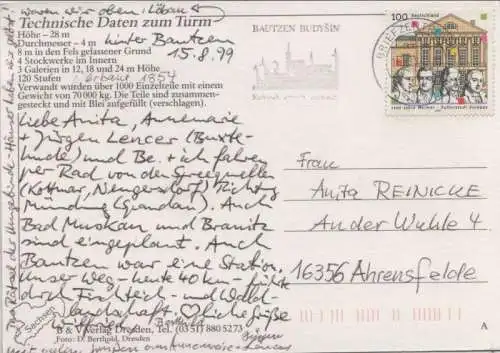 waren wir oben! (Löbau)
Technische Daten zum Turm
Höhe – 28 m
Durchmesser – 4 m
hinter Bautzen
8 m in den Fels gelassener Grund
15.8.99
4 Stockwerke im Innern
3 Galerien in 12, 18 und 24 m Höhe
120 Stufen
erbaut 1854
Verwandt wurden über 1000 Einzelteile mit einem
Gewicht von 70 000 kg. Die Teile sind zusammen-
gesteckt und mit Blei aufgefüllt (verschlagen).
Liebe Anita, Annemarie
+ Jürgen Lencer (Buxte-
hude) und Be. + ich fahren
per Rad von den Spreequellen
(Kottmar, Neugersdorf) Richtung
Mündung (Spandau). Auch
Bad Muskau und Branitz
sind eingeplant. Auch
Bautzen war eine Station.
Unser Weg – heute 40 km – führte
durch Fischteich- und Wald-
landschaft. Herzliche Grüße
Das Rätsel der Umgebinde-Häuser haben wir gelöst
Sachsen
B & V Verlag Dresden, Tel. (03 51) 880 5273
Foto: D. Berthold, Dresden
BAUTZEN BUDYŠIN
BRIEFZE
100 Deutschland
Frau
Anita REINICKE
An der Wuhle 4
16356 Ahrensfelde
A